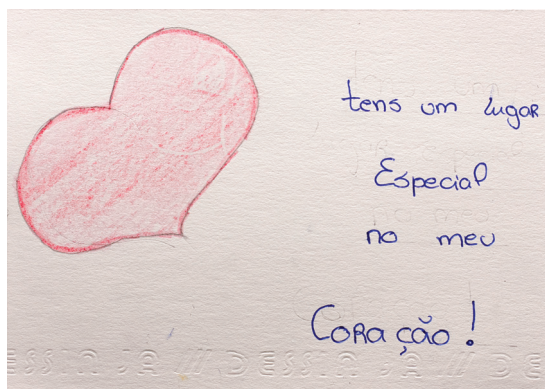 tens um lugar
Especial
no meu
Coração!
ESSIN JA // DESSIN JA // DE